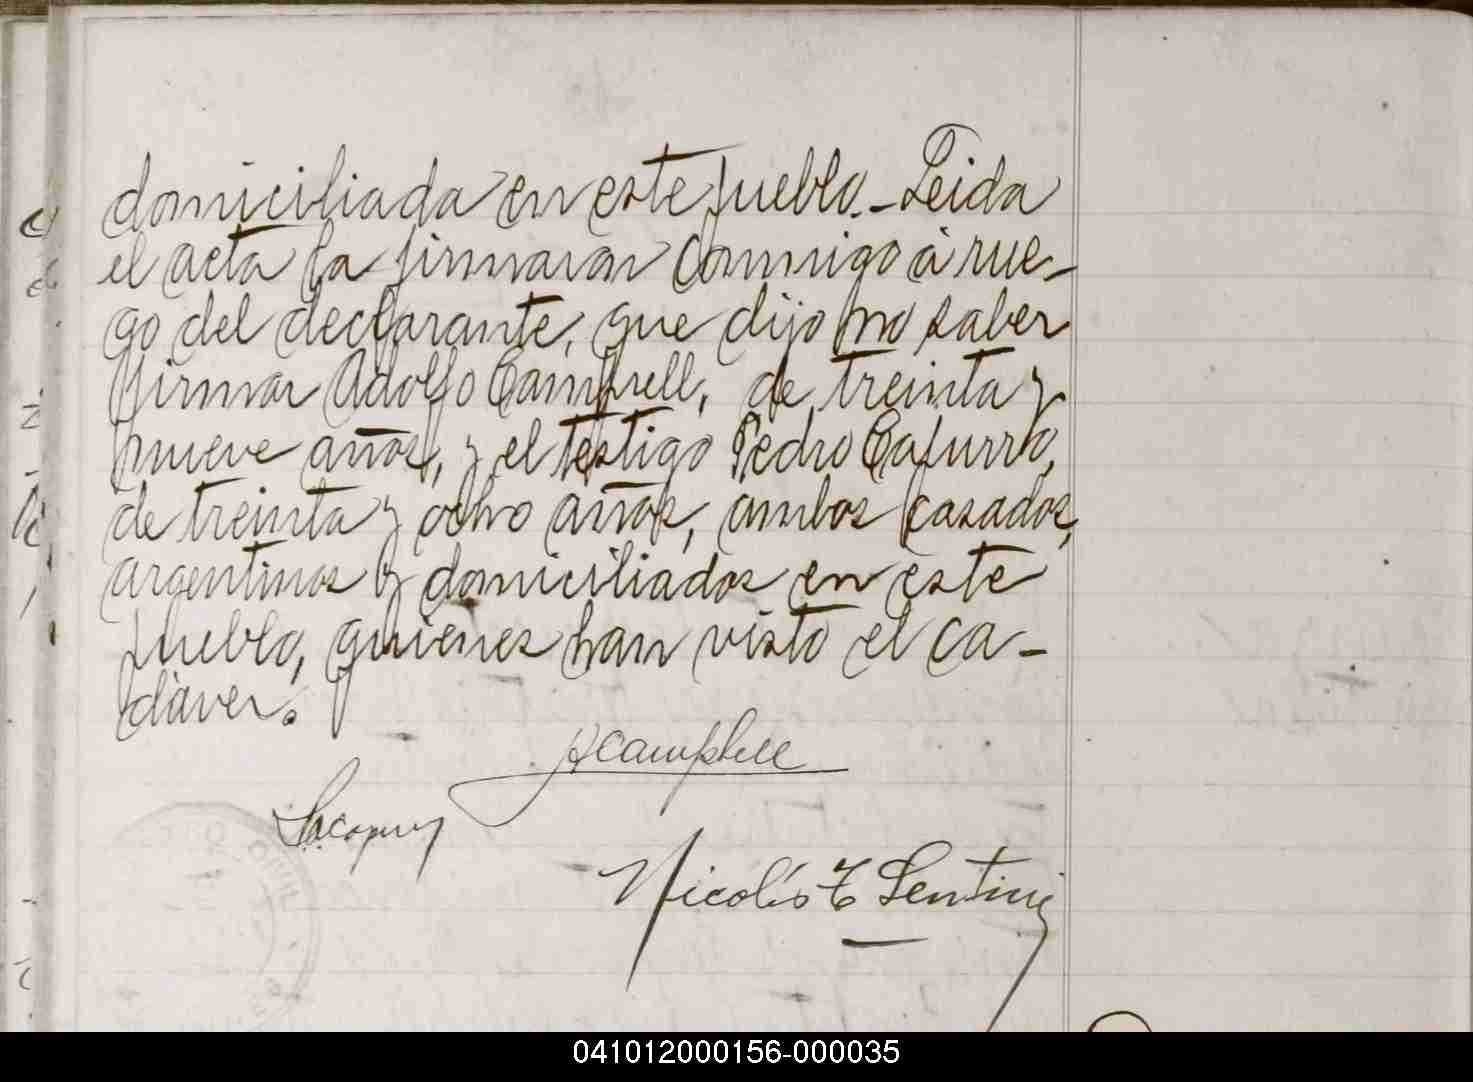 domiciliada en este pueblo.- Leida
el acta la firmaron conmigo à rue-
go del declarante, que dijo no saber
firmar Adolfo Campbell, de treinta y
nueve años, y el testigo Pedro Capurro,
de treinta y ocho años, ambos casados,
argentinos y domiciliados en este
pueblo, quienes han visto el ca-
dàver.
ACampbell
Nicolás
041012000156-000035